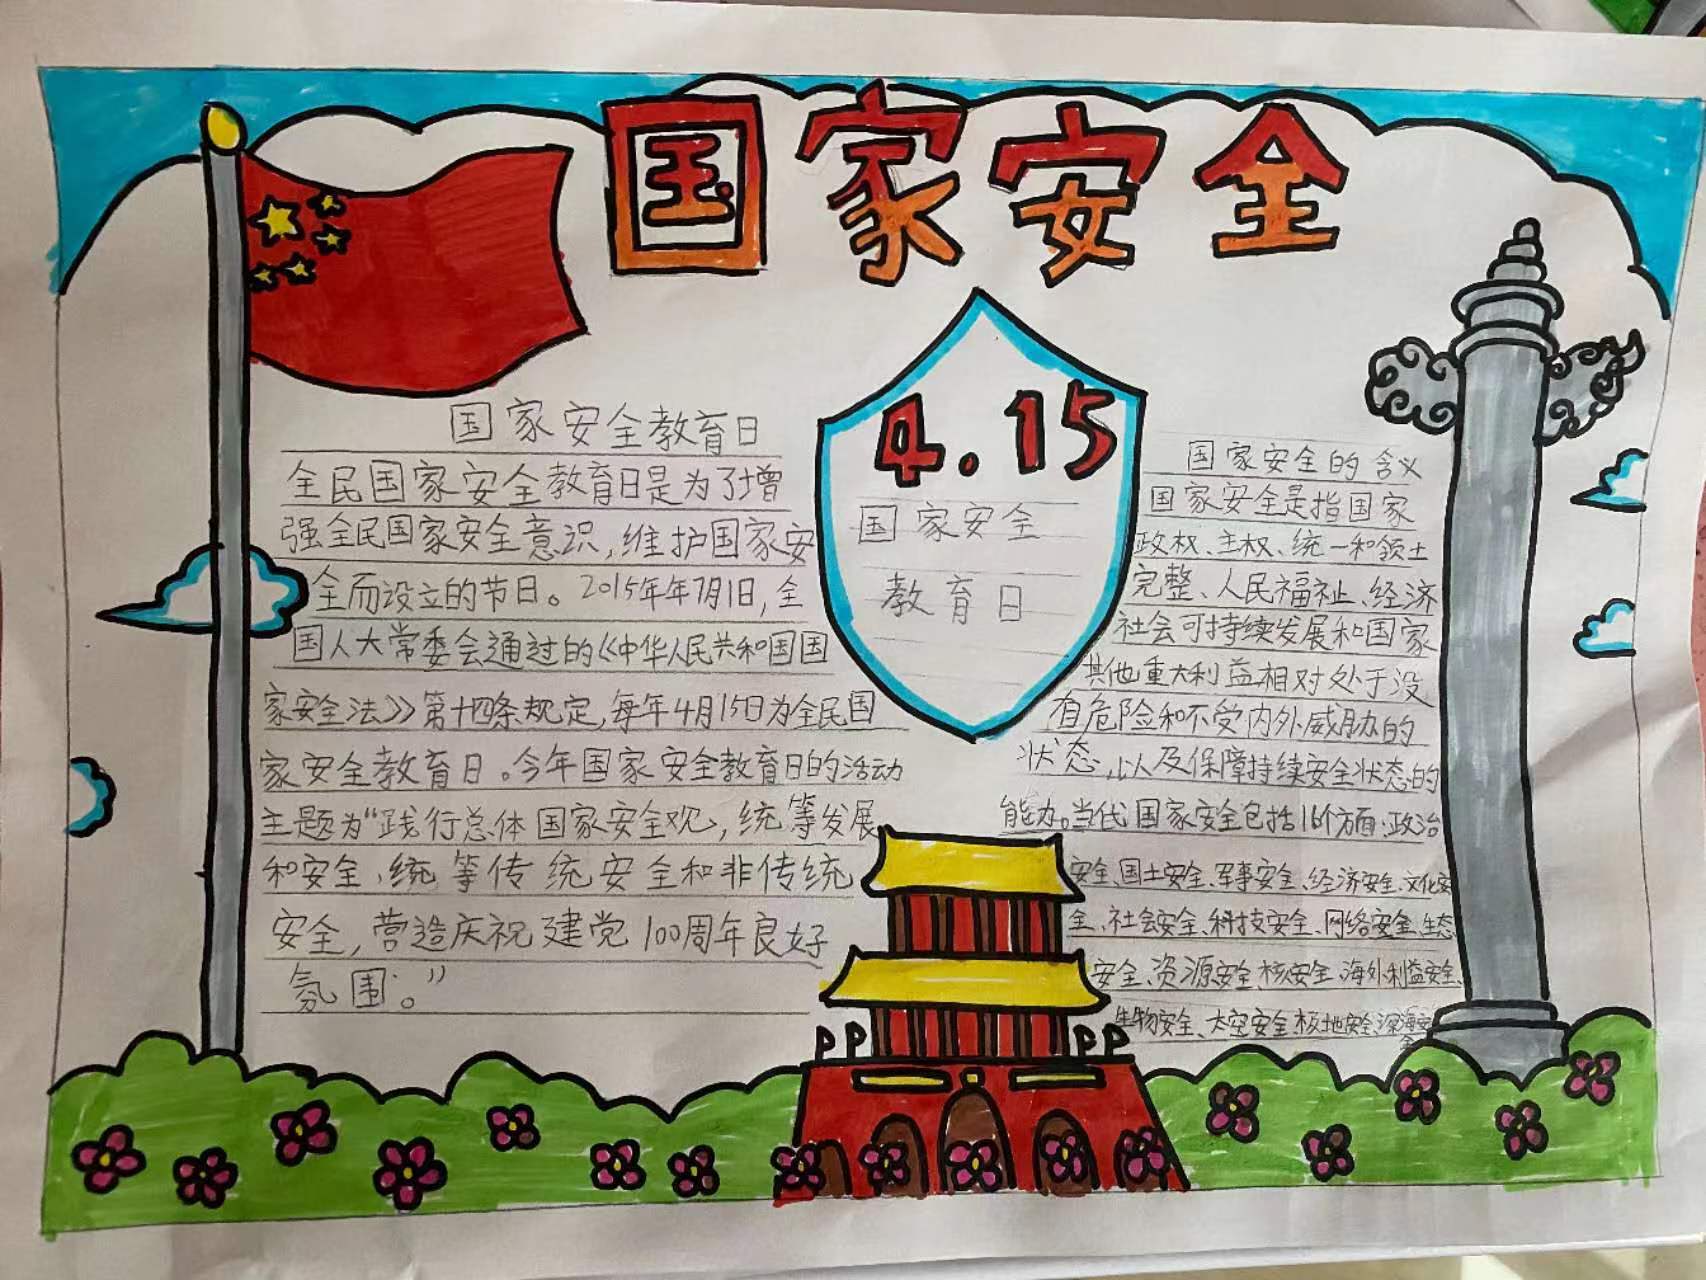 国家安全
国家安全教育日
全民国家安全教育日是为了增
强全民国家安全意识,维护国家安
全而设立的节日。2015年年7月1日,全
国人大常委会通过的《中华人民共和国国
家安全法》》第十四条规定,每年4月15日为全民国
家安全教育日。今年国家安全教育日的活动
主题为“践行总体国家安全观,统筹发展
和安全,统筹传统安全和非传统
安全,营造庆祝建党100周年良好
氛围。”
4.15
国家安全
教育日
国家安全的含义
国家安全是指国家
政权、主权、统一和领土
完整、人民福祉、经济
社会可持续发展和国家
其他重大利益相对处于没
有危险和不受内外威胁的
状态,以及保障持续安全状态的
能力。当代国家安全包括16个方面:政治
安全、国土安全、军事安全、经济安全、文化安
全、社会安全、科技安全、网络安全、生态
安全、资源安全、核安全、海外利益安全、
生物安全、太空安全、极地安全、深海安
全